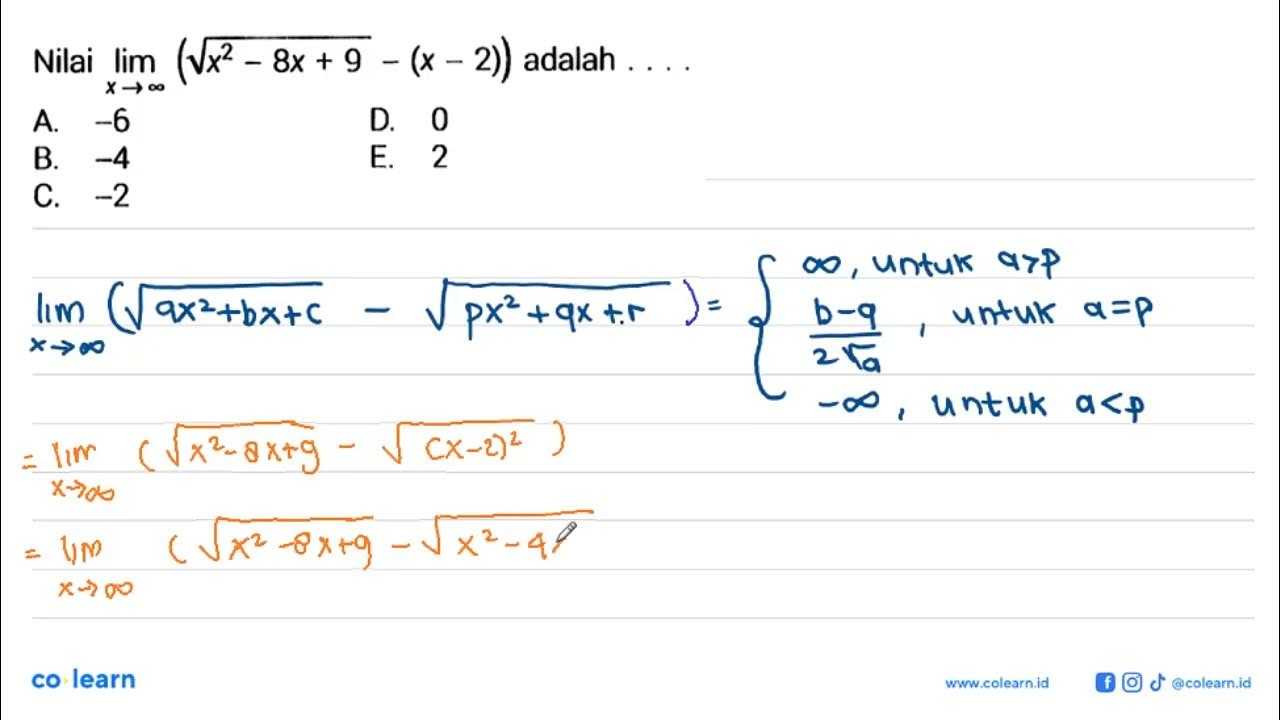 Nilai lim x→∞ (√x² − 8x + 9 − (x − 2)) adalah . . . .
A. −6 D. 0
B. −4 E. 2
C. −2
lim x→∞ (√ax²+bx+c − √px²+qx+r) = { ∞, untuk a>p
b−q / 2√a , untuk a=p
−∞, untuk a<p
= lim x→∞ (√x²−8x+9 − √(x−2)²)
= lim x→∞ (√x²−8x+9 − √x²−4x
co learn www.colearn.id @colearn.id